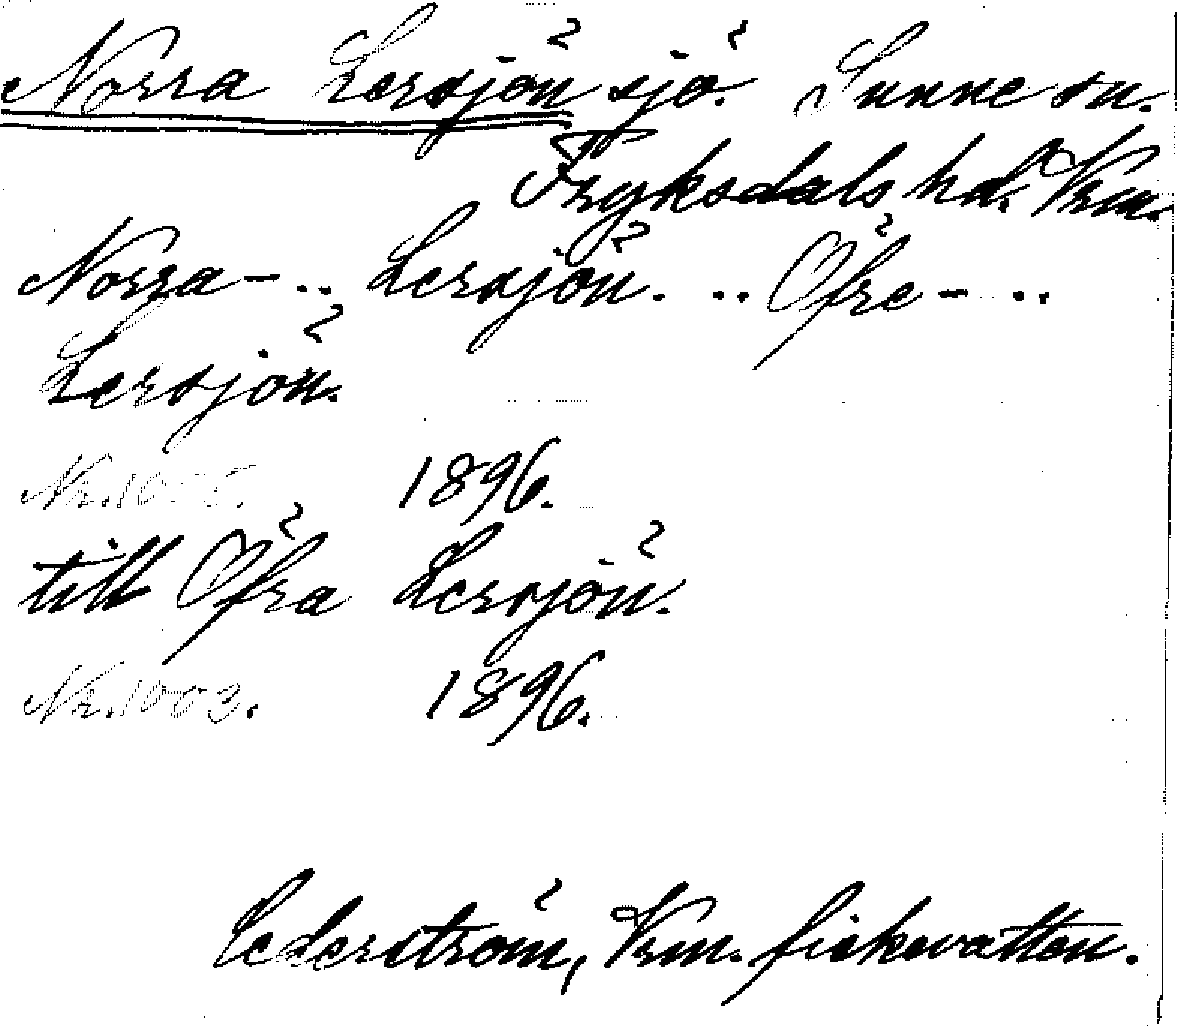 Norra Lersjön sjö. Sunne sn.
Fryksdals hd. Vrm.
Norra - .. Lersjön. .. Öfre - ..
Lersjön.
Nr. 1896.
till Öfra Lersjön.
Nr. 1003. 1896.
Cederström, Vrm. fiskevatten.